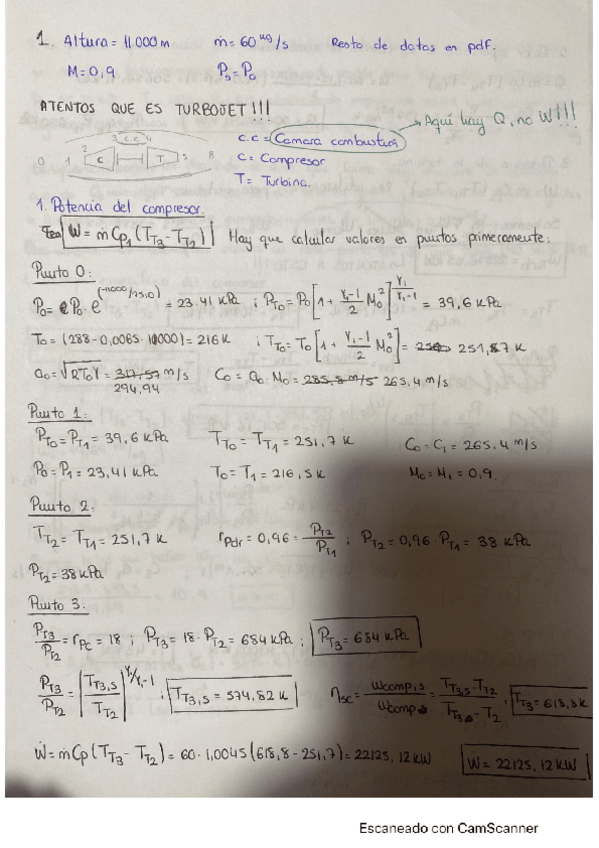 1. Altura = 11.000m ṁ = 60 kg/s Resto de datos en pdf.
M = 0,9 P₅ = P₀
ATENTOS QUE ES TURBOJET!!!
→ Aquí hay Q, no W!!!
3 c.c 4
0 1 2 C T 5 8
c.c = Camara combustion
C = Compresor
T = Turbina.
1. Potencia del compresor.
Ẇ = ṁ Cp₁ (T_T3 - T_T2) Hay que calcular valores en puntos primeramente:
Punto 0:
P₀ = P₀ · e^(-11000/7510) = 23.41 kPa ; P_T0 = P₀ [1 + (γ₁-1)/2 M₀²]^(γ₁/(γ₁-1)) = 39,6 KPa
T₀ = (288 - 0,0065 · 11000) = 216 K ; T_T0 = T₀ [1 + (γ₁-1)/2 M₀²] = 251,7 K
a₀ = √(RT₀γ) = 317,57 m/s C₀ = a₀ · M₀ = 285,8 m/s 265,4 m/s
294,94
Punto 1:
P_T0 = P_T1 = 39,6 KPa T_T0 = T_T1 = 251,7 K C₀ = C₁ = 265,4 m/s
P₀ = P₁ = 23,41 KPa T₀ = T₁ = 216,5 K M₀ = M₁ = 0,9.
Punto 2.
T_T2 = T_T1 = 251,7 K r_Pdr = 0,96 = P_T2/P_T1 ; P_T2 = 0,96 P_T1 = 38 KPa
P_T2 = 38 KPa
Punto 3:
P_T3/P_T2 = r_Pc = 18 ; P_T3 = 18 · P_T2 = 684 KPa ; P_T3 = 684 KPa
P_T3/P_T2 = [T_T3,S/T_T2]^(γ/γ₁-1) ; T_T3,S = 574,82 K η_sc = Wcomp,s/Wcomp = (T_T3,S - T_T2)/(T_T3 - T_T2) ; T_T3 = 618,8K
Ẇ = ṁCp (T_T3 - T_T2) = 60 · 1,0045 (618,8 - 251,7) = 22125,12 KW Ẇ = 22125,12 KW
Escaneado con CamScanner